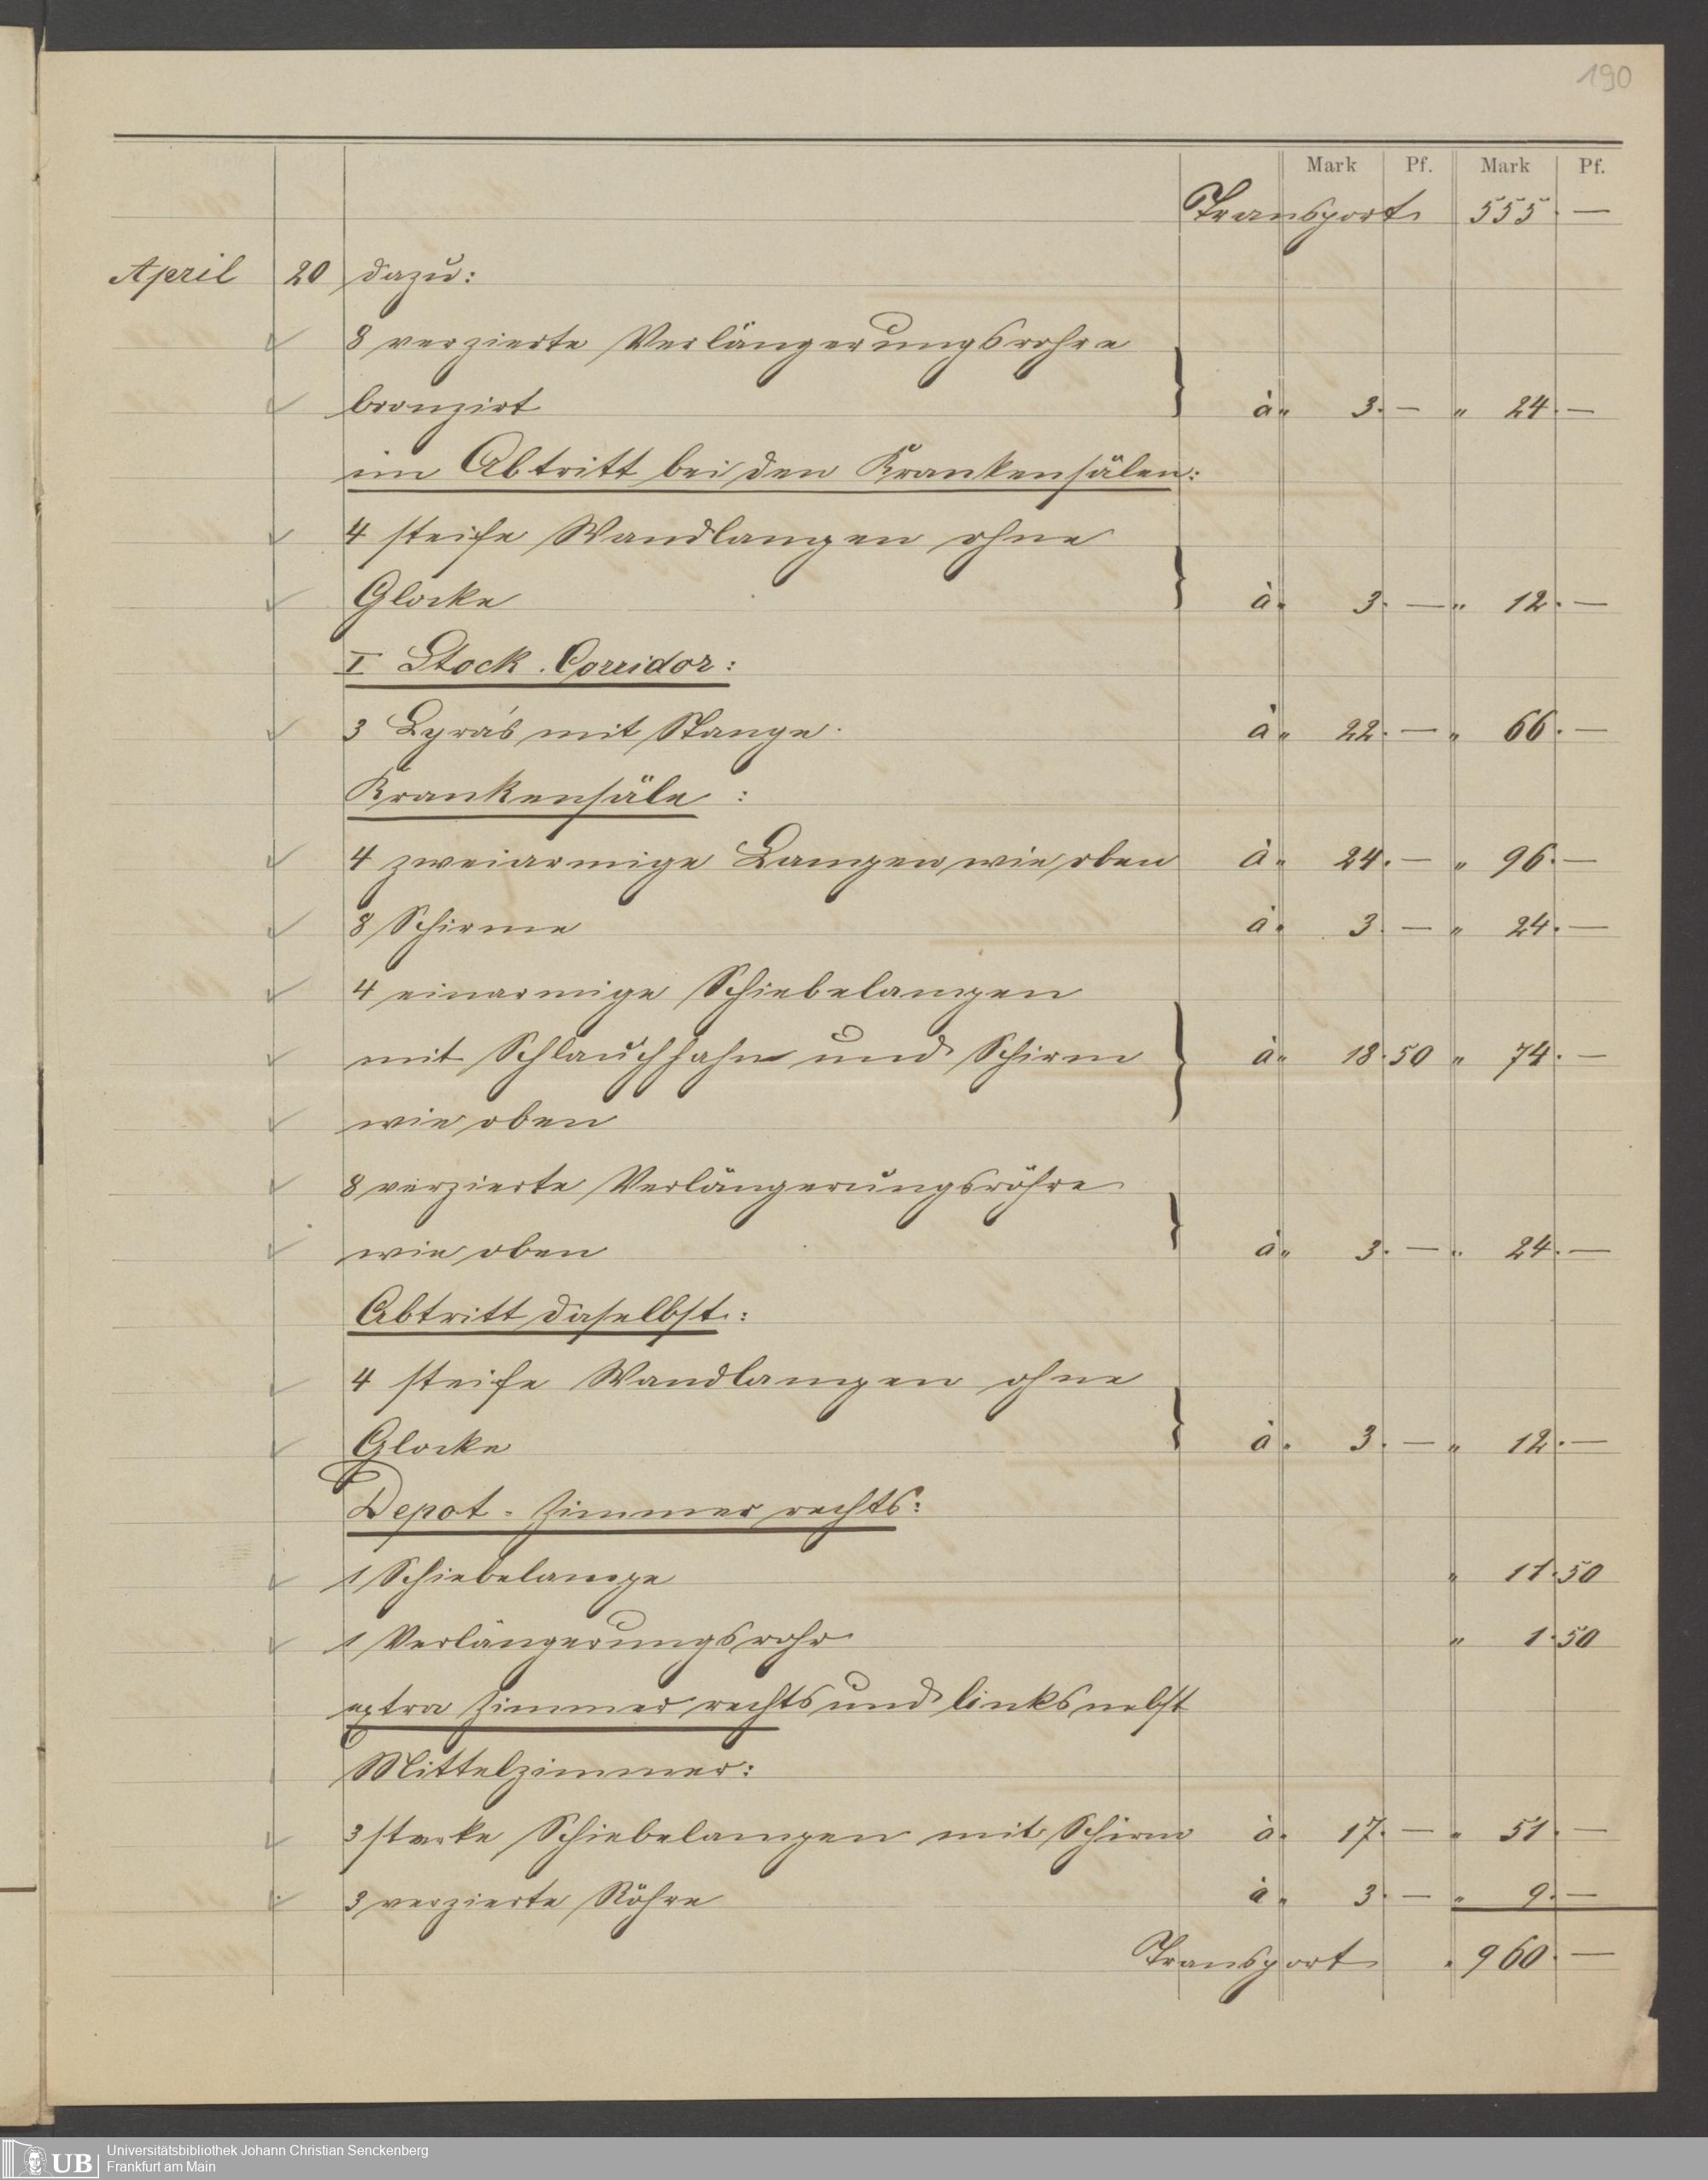 190
Mark Pf. Mark Pf.
Transport 555. —
April 20 dazu:
8 verzierte Verlängerungsrohre
bronzirt à „ 3. — „ 24. —
im Abtritt bei den Krankensälen:
4 steife Wandlampen ohne
Glocke à „ 3. — „ 12. —
I Stock. Corridor:
3 Lyra's mit Stange. à „ 22. — „ 66. —
Krankensäle:
4 zweiarmige Lampen wie oben à „ 24. — „ 96. —
8 Schirme à „ 3. — „ 24. —
4 einarmige Schiebelampen
mit Schlauchhahn und Schirm à „ 18. 50 „ 74. —
wie oben
8 verzierte Verlängerungsröhre
wie oben à „ 3. — „ 24. —
Abtritt daselbst:
4 steife Wandlampen ohne
Glocke à „ 3. — „ 12. —
Depot-Zimmer rechts:
1 Schiebelampe „ 11. 50
1 Verlängerungsrohr „ 1. 50
extra Zimmer rechts und links nebst
Mittelzimmer:
3 starke Schiebelampen mit Schirm à „ 17. — „ 51. —
3 verzierte Röhre à „ 3. — „ 9. —
Transport „ 960. —
UB Universitätsbibliothek Johann Christian Senckenberg
Frankfurt am Main